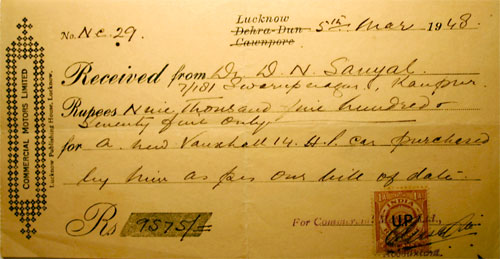 Lucknow
No. NC 29. Dehra-Dun 5th Mar 1948.
Cawnpore
Received from Dr D. N. Sanyal.
7/181 Swarupnagar, Kanpur
Rupees Nine thousand five hundred &
Seventy five only
for a new Vauxhall 14 H.P. car purchased
by him as per our bill of date.
Rs 9575/=
For Commercial
Accountant
INDIA
U.P.
COMMERCIAL MOTORS LIMITED
Lucknow Publishing House, Lucknow.